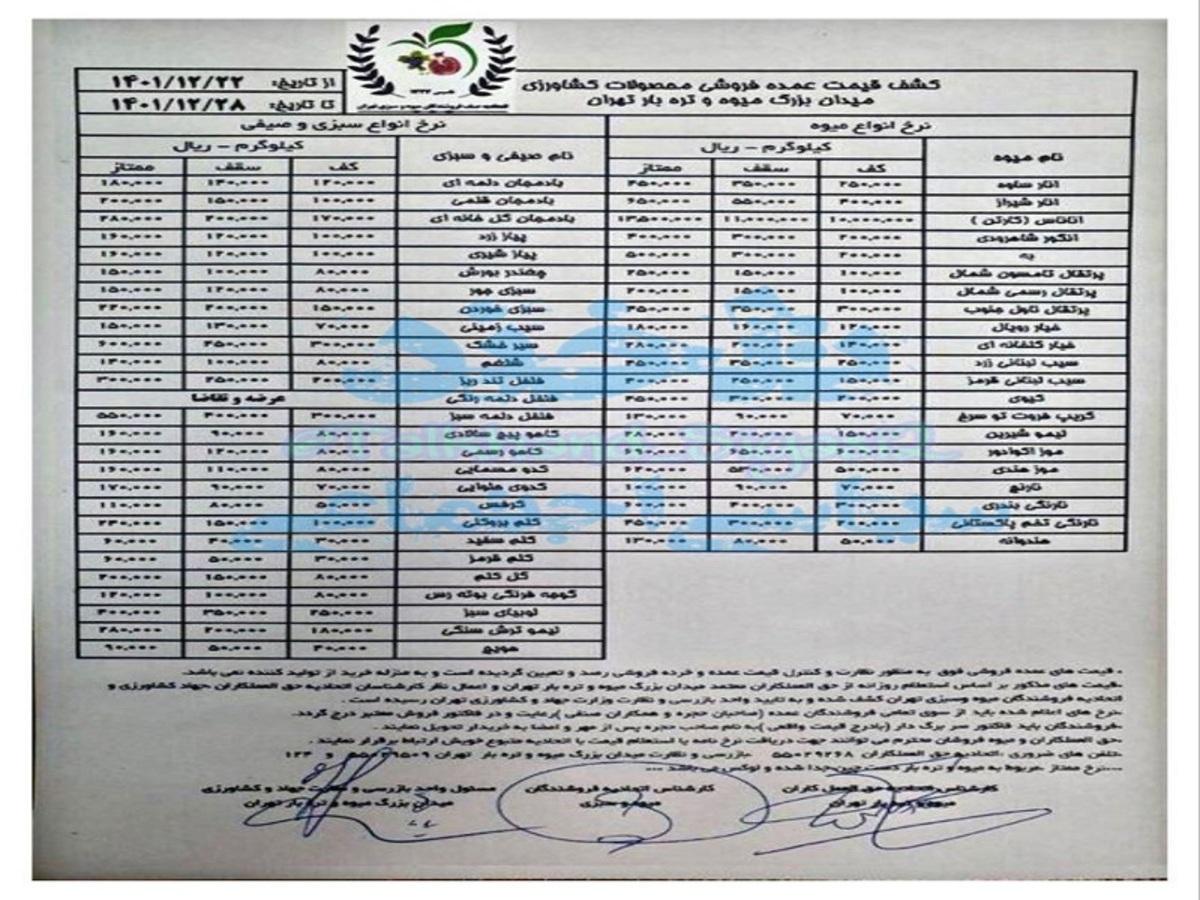 کشف قیمت عمده فروشی محصولات کشاورزی
میدان بزرگ میوه و تره بار تهران
از تاریخ: ۱۴۰۱/۱۲/۲۲
تا تاریخ: ۱۴۰۱/۱۲/۲۸
نرخ انواع میوه
نرخ انواع سبزی و صیفی
نام میوه
کیلوگرم - ریال
کف سقف ممتاز
نام صیفی و سبزی
کیلوگرم - ریال
کف سقف ممتاز
انار ساوه ۲۵۰,۰۰۰ ۳۵۰,۰۰۰ ۴۵۰,۰۰۰ بادمجان دلمه ای ۱۲۰,۰۰۰ ۱۴۰,۰۰۰ ۱۸۰,۰۰۰
انار شیراز ۴۰۰,۰۰۰ ۵۵۰,۰۰۰ ۶۵۰,۰۰۰ بادمجان قلمی ۱۰۰,۰۰۰ ۱۵۰,۰۰۰ ۲۰۰,۰۰۰
آناناس (کارتن) ۱۰,۰۰۰,۰۰۰ ۱۱,۰۰۰,۰۰۰ بادمجان گل خانه ای ۱۷۰,۰۰۰ ۲۰۰,۰۰۰ ۲۸۰,۰۰۰
انگور شاهرودی ۲۰۰,۰۰۰ ۳۰۰,۰۰۰ ۴۰۰,۰۰۰ پیاز زرد ۱۰۰,۰۰۰ ۱۲۰,۰۰۰ ۱۶۰,۰۰۰
به ۲۰۰,۰۰۰ ۳۰۰,۰۰۰ ۵۰۰,۰۰۰ پیاز شیری ۱۰۰,۰۰۰ ۱۲۰,۰۰۰ ۱۶۰,۰۰۰
پرتقال تامسون شمال ۱۰۰,۰۰۰ ۱۵۰,۰۰۰ ۲۵۰,۰۰۰ چغندر بورش ۸۰,۰۰۰ ۱۰۰,۰۰۰ ۱۵۰,۰۰۰
پرتقال رسمی شمال ۱۰۰,۰۰۰ ۱۵۰,۰۰۰ ۲۰۰,۰۰۰ سبزی جور ۸۰,۰۰۰ ۱۲۰,۰۰۰ ۱۵۰,۰۰۰
پرتقال ناول جنوب ۳۰۰,۰۰۰ ۳۵۰,۰۰۰ ۴۵۰,۰۰۰ سبزی خوردن ۱۵۰,۰۰۰ ۲۰۰,۰۰۰ ۲۲۰,۰۰۰
خیار رویال ۱۲۰,۰۰۰ ۱۶۰,۰۰۰ ۱۸۰,۰۰۰ سیب زمینی ۷۰,۰۰۰ ۱۳۰,۰۰۰ ۱۵۰,۰۰۰
خیار گلخانه ای ۱۴۰,۰۰۰ ۲۰۰,۰۰۰ ۲۸۰,۰۰۰ سیر خشک ۳۰۰,۰۰۰ ۴۵۰,۰۰۰ ۶۰۰,۰۰۰
سیب لبنانی زرد ۲۵۰,۰۰۰ ۳۵۰,۰۰۰ ۴۵۰,۰۰۰ شلغم ۸۰,۰۰۰ ۱۰۰,۰۰۰ ۱۳۰,۰۰۰
سیب لبنانی قرمز ۱۵۰,۰۰۰ ۲۵۰,۰۰۰ ۴۰۰,۰۰۰ فلفل تند ریز ۲۰۰,۰۰۰ ۲۵۰,۰۰۰ ۳۰۰,۰۰۰
کیوی ۲۰۰,۰۰۰ ۳۰۰,۰۰۰ ۴۵۰,۰۰۰ فلفل دلمه رنگی عرضه و تقاضا
گریپ فروت تو سرخ ۷۰,۰۰۰ ۹۰,۰۰۰ ۱۳۰,۰۰۰ فلفل دلمه سبز ۳۰۰,۰۰۰ ۴۰۰,۰۰۰ ۵۵۰,۰۰۰
لیمو شیرین ۱۵۰,۰۰۰ ۲۰۰,۰۰۰ ۲۸۰,۰۰۰ کاهو پیچ سالادی ۸۰,۰۰۰ ۹۰,۰۰۰ ۱۶۰,۰۰۰
موز اکوادور ۶۵۰,۰۰۰ ۶۹۰,۰۰۰ کاهو رسمی ۸۰,۰۰۰ ۱۲۰,۰۰۰ ۱۶۰,۰۰۰
موز هندی ۵۰۰,۰۰۰ ۵۳۰,۰۰۰ ۶۲۰,۰۰۰ کدو مسمایی ۸۰,۰۰۰ ۱۱۰,۰۰۰ ۱۶۰,۰۰۰
نارنج ۷۰,۰۰۰ ۹۰,۰۰۰ ۱۰۰,۰۰۰ کدوی حلوایی ۷۰,۰۰۰ ۹۰,۰۰۰ ۱۷۰,۰۰۰
نارنگی بندری ۳۰۰,۰۰۰ ۴۰۰,۰۰۰ ۶۰۰,۰۰۰ کرفس ۵۰,۰۰۰ ۸۰,۰۰۰ ۱۱۰,۰۰۰
نارنگی تخم پاکستانی ۲۰۰,۰۰۰ ۳۰۰,۰۰۰ ۴۵۰,۰۰۰ کلم بروکلی ۱۰۰,۰۰۰ ۱۵۰,۰۰۰ ۲۳۰,۰۰۰
هندوانه ۵۰,۰۰۰ ۸۰,۰۰۰ ۱۳۰,۰۰۰ کلم سفید ۳۰,۰۰۰ ۴۰,۰۰۰ ۶۰,۰۰۰
کلم قرمز ۳۰,۰۰۰ ۵۰,۰۰۰ ۶۰,۰۰۰
گل کلم ۸۰,۰۰۰ ۱۵۰,۰۰۰ ۲۰۰,۰۰۰
گوجه فرنگی بوته رس ۸۰,۰۰۰ ۱۰۰,۰۰۰ ۱۲۰,۰۰۰
لوبیای سبز ۲۵۰,۰۰۰ ۳۵۰,۰۰۰ ۴۰۰,۰۰۰
لیمو ترش سنگی ۱۸۰,۰۰۰ ۲۰۰,۰۰۰ ۲۸۰,۰۰۰
هویج ۳۰,۰۰۰ ۵۰,۰۰۰ ۹۰,۰۰۰
- قیمت های عمده فروشی فوق به منظور نظارت و کنترل قیمت عمده و خرده فروشی رصد و تعیین گردیده است و به منزله خرید از تولید کننده نمی باشد.
-قیمت های مذکور بر اساس استعلام روزانه از حق العملکاران معتمد میدان بزرگ میوه و تره بار تهران و اعمال نظر کارشناسان اتحادیه حق العملکاران ،جهاد کشاورزی و
اتحادیه فروشندگان میوه وسبزی تهران کشف شده و به تایید واحد بازرسی و نظارت وزارت جهاد و کشاورزی تهران رسیده است .
-نرخ های اعلام شده باید از سوی تمامی فروشندگان عمده (صاحبان حجره و همکاران صنفی )رعایت و در فاکتور فروش معتبر درج گردد.
-فروشندگان باید فاکتور سر برگ دار (بادرج قیمت واقعی )به نام صاحب حجره پس از مهر و امضا به خریدار تحویل نمایند.
-حق العملکاران و میوه فروشان محترم می توانند جهت دریافت نرخ نامه یا استعلام قیمت با اتحادیه متبوع خویش ارتباط برقرار نمایند.
-تلفن های ضروری :اتحادیه حق العملکاران ۵۵۰۲۹۲۶۸ بازرسی و نظارت میدان بزرگ میوه و تره بار تهران و ۱۲۴
---نرخ ممتاز مربوط به میوه و تره بار دست چین،جدا شده و لوکس می باشد ---
کارشناس اتحادیه حق العمل کاران
میوه و تره بار تهران
کارشناس اتحادیه فروشندگان
میوه و سبزی
مسئول واحد بازرسی و نظارت جهاد و کشاورزی
میدان بزرگ میوه و تره بار تهران